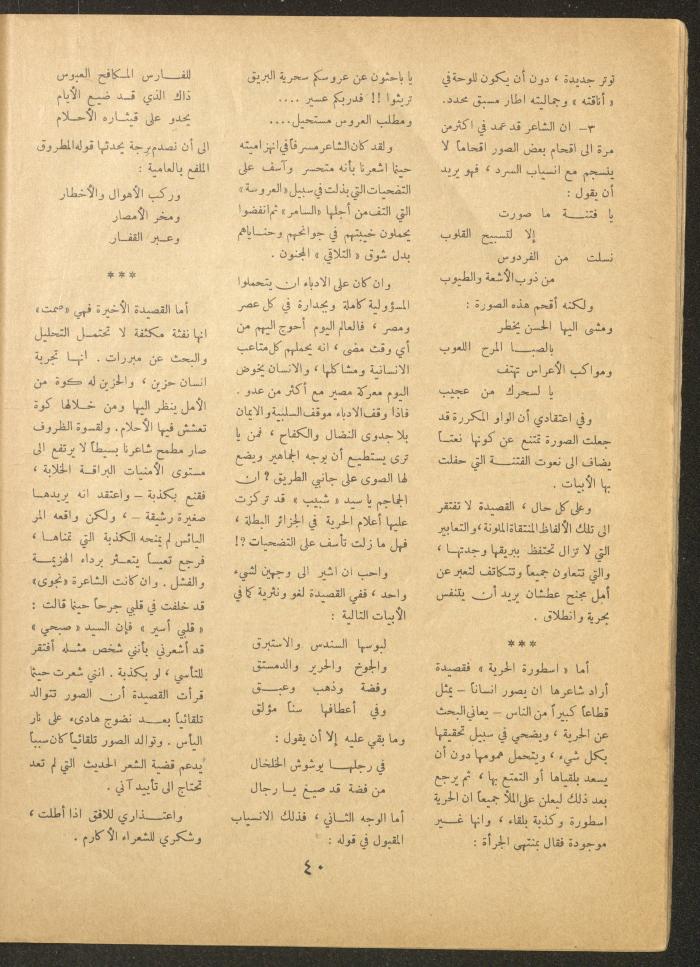 توتر جديدة ، دون أن يكون للوحة في
« أناقته » وجماليته اطار مسبق محدد.
٣- ان الشاعر قد عمد في اكثر من
مرة الى اقحام بعض الصور اقحاماً لا
ينسجم مع انسياب السرد ، فهو يريد
أن يقول :
يا فتنـــة ما صورت
إلا لتسبيح القلوب
نسلت من الفردوس
من ذوب الأشعة والطيوب
ولكنه أقحم هذه الصورة :
ومشى اليها الحسن يخطر
بالصبـــا المرح اللعوب
ومواكب الأعراس تهتف
يا لسحرك من عجيب
وفي اعتقادي أن الواو المكررة قد
جعلت الصورة تمتنع عن كونها نعتـاً
يضاف الى نعوت الفتنـة التي حفلت
بها الأبيات .
وعلى كل حال ، القصيدة لا تفتقر
الى تلك الألفاظ المنتقاة الملونة، والتعابير
التي لا تزال تحتفظ ببريقها وجدتهـا ،
والتي تتعاون جميعاً وتتكاتف لتعبر عن
أهل مجنح عطشان يريد أن يتنفس
بحرية وانطلاق .
***
أما « اسطورة الحرية » فقصيدة
أراد شاعرها ان يصور انساناً – يمثل
قطاعاً كبيراً من الناس – يعاني البحث
عن الحرية ، ويضحي في سبيل تحقيقها
بكل شيء ، ويتحمل همومها دون أن
يسعد بلقياها أو التمتع بها ، ثم يرجع
بعد ذلك ليعلن على الملأ جميعاً ان الحرية
اسطورة وكذبة بلقاء ، وانها غــير
موجودة فقال بمنتهى الجرأة :
يا باحثون عن عروسكم سحرية البريق
تريثوا !! فدربكم عسير ....
ومطلب العروس مستحيل....
ولقد كان الشاعر مسرفاً في انهزاميته
حينما اشعرنا بأنه متحسر وآسف على
التضحيات التي بذلت في سبيل « العروسة »
التي التف من أجلها «السامر» ثم انفضوا
يحملون خيبتهم في جوانحهم وحناياهم
بدل شوق « التلاقي » المجنون .
وان كان على الادباء ان يتحملوا
المسؤولية كاملة وبجدارة في كل عصر
ومصر ، فالعالم اليوم أحوج اليهم من
أي وقت مضى ، انه يحملهم كل متاعب
الانسانية ومشاكلها ، والانسان يخوض
اليوم معركة مصير مع أكثر من عدو .
فاذا وقف الادباء موقف السلبية والايمان
بلا جدوى النضال والكفاح ، فمن يا
ترى يستطيـع أن يوجه الجماهير ويضع
لها الصوى على جانبي الطريق ؟ ان
الجماجم يا سيد « شبيب » قد تركزت
عليها أعلام الحرية في الجزائر البطلة ،
فهل ما زلت تأسف على التضحيات ؟!
واحب ان اشير الى وجهين لشيء
واحد ، ففي القصيدة لغو ونثرية كما في
الأبيات التالية :
لبوسها السندس والاستبرق
والجوخ والحرير والدمستق
وفضة وذهب وعبـــق
وفي أعطافها سناً مؤلق
وما بقي عليه إلا أن يقول :
في رجلهـا يوشوش الخلخال
من فضة قد صيغ يـا رجال
أما الوجه الثـاني ، فذلك الانسياب
المقبول في قوله :
للفــارس المـكافح العبوس
ذاك الذي قــد ضيـع الأيام
يحدو على قيثـاره الأحلام
الى أن نصدم برجة يحدثها قوله المطروق
الملفع بالعامية :
وركب الأهوال والأخطار
ومخر الأمصار
وعـــبر القفــار
***
أما القصيدة الأخيرة فهي «صمت»
انها نفثة مكثفة لا تحتمــل التحليل
والبحث عن مبررات . انهــا تجربة
انسان حزين ، والحزين له كوة من
الأمل ينظر اليها ومن خلالها كوة
تعشش فيها الأحلام. ولقسوة الظروف
صار مطمح شاعرنا بسيطاً لا يرتفع الى
مستوى الأمنيات البراقـة الخلابة ،
فقنع بكذبة – واعتقد انه يريدهـا
صغيرة رشيقة – ، ولكن واقعه المر
اليائس لم يمنحه الكذبة التي تمناهـا ،
فرجع تعيساً يتعــثر برداء الهزيمــة
والفشل . وان كانت الشاعرة «نجوى»
قد خلفت في قلبي جرحاً حينما قالت :
« قلبي أسير » فإن السيد « صبحي »
قد أشعرني بأنني شخص مثـله أفتقر
للتأسي ، لو بكذبة . انني شعرت حينما
قرأت القصيدة أن الصور تتوالد
تلقائياً بعــد نضوج هادىء على نار
اليأس . وتوالد الصور تلقائياً كان سبباً
يدعم قضية الشعر الحديث التي لم تعد
تحتاج الى تأييد آني .
واعتـــذاري للافق اذا أطلت ،
وشكري للشعراء الأكارم .
٤٠